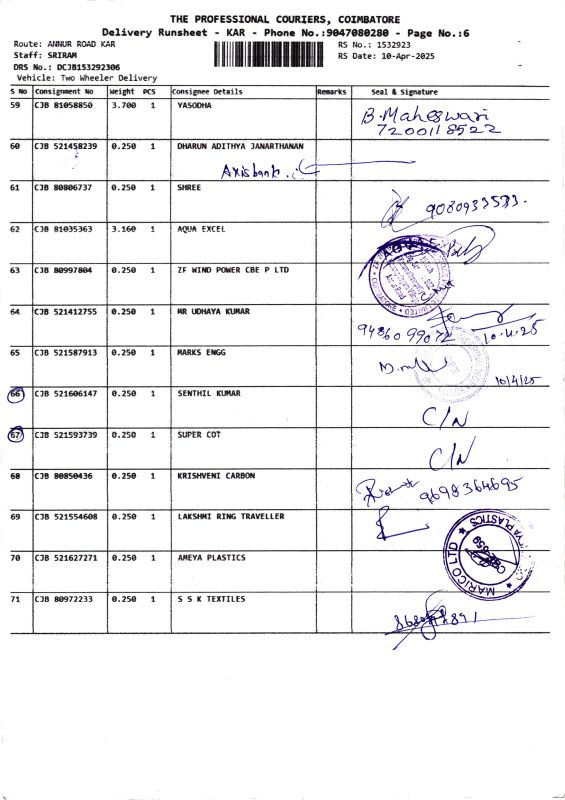 THE PROFESSIONAL COURIERS, COIMBATORE
Delivery Runsheet - KAR - Phone No.:9047080280 - Page No.:6
Route: ANNUR ROAD KAR RS No.: 1532923
Staff: SRIRAM RS Date: 10-Apr-2025
DRS No.: DCJB153292306
Vehicle: Two Wheeler Delivery
S No Consignment No Weight PCS Consignee Details Remarks Seal & Signature
59 CJB 81058850 3.700 1 YASODHA B. Maheswari
7200118522
60 CJB 521458239 0.250 1 DHARUN ADITHYA JANARTHANAN
Axisbank.
61 CJB 80806737 0.250 1 SHREE 9080933533.
62 CJB 81035363 3.160 1 AQUA EXCEL
63 CJB 80997804 0.250 1 ZF WIND POWER CBE P LTD
64 CJB 521412755 0.250 1 MR UDHAYA KUMAR
9486099072 10.4.25
65 CJB 521587913 0.250 1 MARKS ENGG
10/4/25
66 CJB 521606147 0.250 1 SENTHIL KUMAR C/N
67 CJB 521593739 0.250 1 SUPER COT C/N
68 CJB 80850436 0.250 1 KRISHVENI CARBON 9698364695
69 CJB 521554608 0.250 1 LAKSHMI RING TRAVELLER
70 CJB 521627271 0.250 1 AMEYA PLASTICS MARICO LTD PLASTICS
71 CJB 80972233 0.250 1 S S K TEXTILES